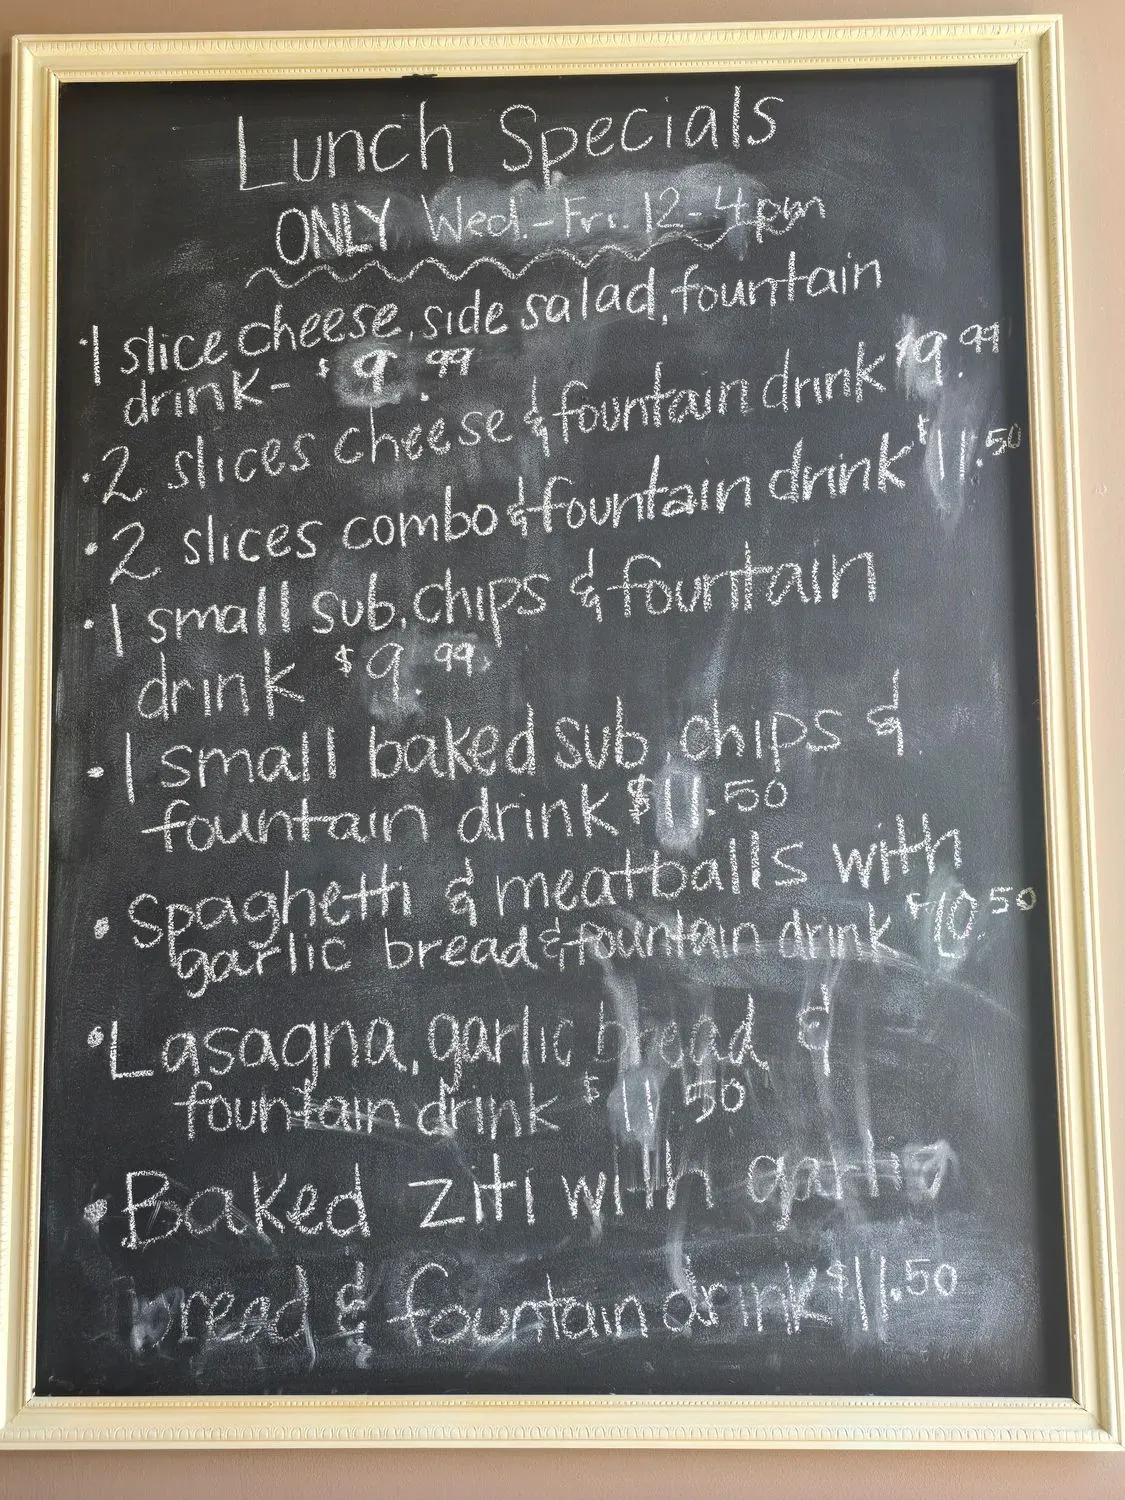 Lunch Specials
ONLY Wed.-Fri. 12-4pm
·1 slice cheese, side salad, fountain
drink- $9.99
·2 slices cheese & fountain drink $9.99
·2 slices combo & fountain drink $11.50
·1 small sub, chips & fountain
drink $9.99
·1 small baked sub, chips &
fountain drink $11.50
·Spaghetti & meatballs with
garlic bread & fountain drink $10.50
·Lasagna, garlic bread &
fountain drink $11.50
·Baked ziti with garlic
bread & fountain drink $11.50